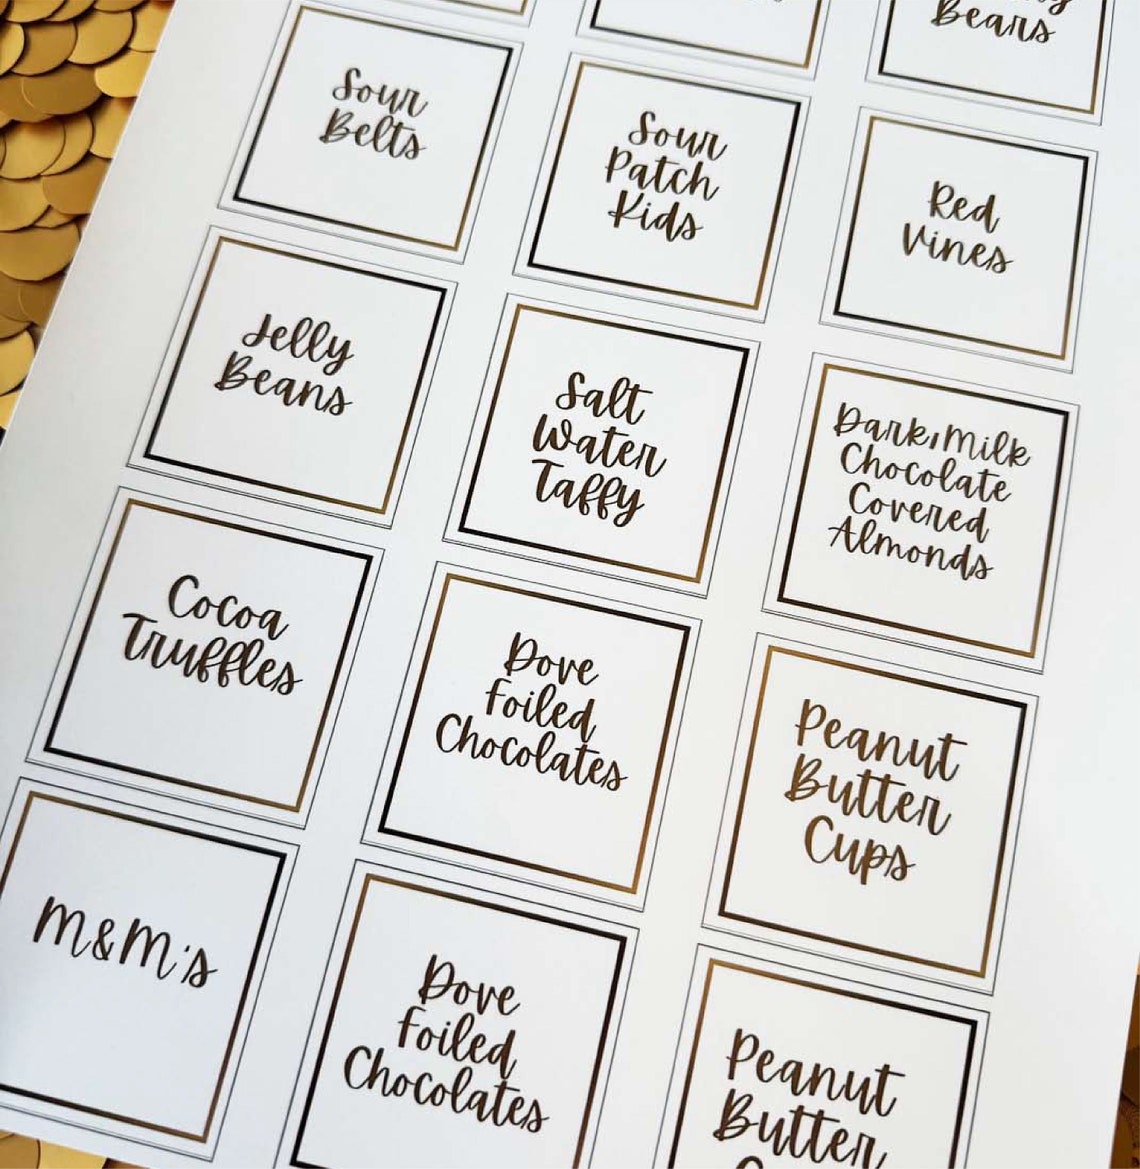 Bears
Sour
Belts
Sour
Patch
Kids
Red
Vines
Jelly
Beans
Salt
Water
Taffy
Dark/Milk
Chocolate
Covered
Almonds
Cocoa
Truffles
Dove
Foiled
Chocolates
Peanut
Butter
Cups
M&M's
Dove
Foiled
Chocolates
Peanut
Butter